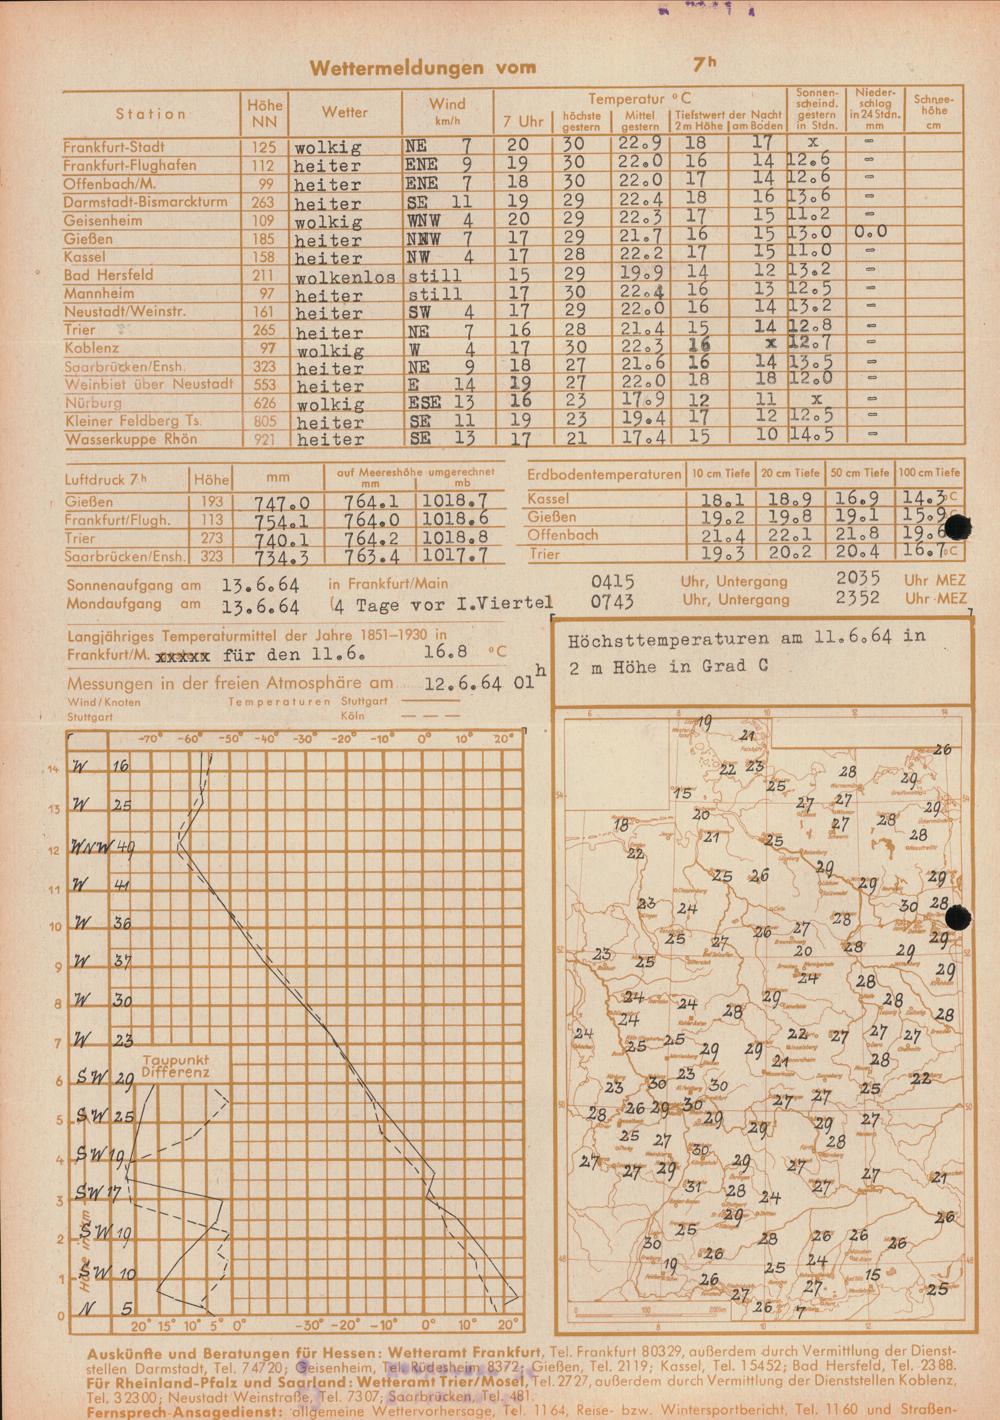 Wettermeldungen vom 7h
Station Höhe NN Wetter Wind km/h Temperatur °C Sonnen-scheind. gestern in Stdn. Nieder-schlag in 24 Stdn. mm Schnee-höhe cm
7 Uhr höchste gestern Mittel gestern Tiefstwert der Nacht 2 m Höhe am Boden
Frankfurt-Stadt 125 wolkig NE 7 20 30 22.9 18 17 x -
Frankfurt-Flughafen 112 heiter ENE 9 19 30 22.0 16 14 12.6 -
Offenbach/M. 99 heiter ENE 7 18 30 22.0 17 14 12.6 -
Darmstadt-Bismarckturm 263 heiter SE 11 19 29 22.4 18 16 13.6 -
Geisenheim 109 wolkig WNW 4 20 29 22.3 17 15 11.2 -
Gießen 185 heiter NNW 7 17 29 21.7 16 15 13.0 0.0
Kassel 158 heiter NW 4 17 28 22.2 17 15 11.0 -
Bad Hersfeld 211 wolkenlos still 15 29 19.9 14 12 13.2 -
Mannheim 97 heiter still 17 30 22.4 16 13 12.5 -
Neustadt/Weinstr. 161 heiter SW 4 17 29 22.0 16 14 13.2 -
Trier 265 heiter NE 7 16 28 21.4 15 14 12.8 -
Koblenz 97 wolkig W 4 17 30 22.3 16 x 12.7 -
Saarbrücken/Ensh. 323 heiter NE 9 18 27 21.6 16 14 13.5 -
Weinbiet über Neustadt 553 heiter E 14 19 27 22.0 18 18 12.0 -
Nürburg 626 wolkig ESE 13 16 23 17.9 12 11 x -
Kleiner Feldberg Ts. 805 heiter SE 11 19 23 19.4 17 12 12.5 -
Wasserkuppe Rhön 921 heiter SE 13 17 21 17.4 15 10 14.5 -
Luftdruck 7h Höhe mm auf Meereshöhe umgerechnet mm mb
Gießen 193 747.0 764.1 1018.7
Frankfurt/Flugh. 113 754.1 764.0 1018.6
Trier 273 740.1 764.2 1018.8
Saarbrücken/Ensh. 323 734.3 763.4 1017.7
Erdbodentemperaturen 10 cm Tiefe 20 cm Tiefe 50 cm Tiefe 100 cm Tiefe
Kassel 18.1 18.9 16.9 14.3 °C
Gießen 19.2 19.8 19.1 15.9
Offenbach 21.4 22.1 21.8 19.6
Trier 19.3 20.2 20.4 16.7 °C
Sonnenaufgang am 13.6.64 in Frankfurt/Main 0415 Uhr, Untergang 2035 Uhr MEZ
Mondaufgang am 13.6.64 (4 Tage vor I.Viertel 0743 Uhr, Untergang 2352 Uhr MEZ
Langjähriges Temperaturmittel der Jahre 1851-1930 in
Frankfurt/M. xxxxx für den 11.6. 16.8 °C
Messungen in der freien Atmosphäre am 12.6.64 01h
Wind/Knoten Temperaturen Stuttgart
Stuttgart Köln
Höchsttemperaturen am 11.6.64 in
2 m Höhe in Grad C
-70° -60° -50° -40° -30° -20° -10° 0° 10° 20°
14 W 16
13 W 25
12 WNW 49
11 W 41
10 W 36
9 W 37
8 W 30
7 W 23
Taupunkt
Differenz
6 SW 29
5 SW 25
4 SW 19
3 SW 17
2 SW 19
1 SW 10
0 N 5
Höhe in km
20° 15° 10° 5° 0° -30° -20° -10° 0° 10° 20°
6 8 10 12 14
19 21 26
22 23 28 29
15 25 27 27 29
18 20 27 28 28
22 21 25 29
25 26 29 29
23 24 28 30 28
25 27 26 27 28 29 29
23 25 20 24 28 29
24 24 28 29 28 28
24 24 25 25 29 29 22 27 27 27
21 28
23 30 23 30 25 22
28 26 29 30 29 27 27 27
25 27 29 29 28
27 27 29 30 29 27 27 21
31 28 24 27
29 26
30 25 28 26 26 26
19 26 25 24 15
26 27 27 25
26 7
Auskünfte und Beratungen für Hessen: Wetteramt Frankfurt, Tel. Frankfurt 80329, außerdem durch Vermittlung der Dienst-
stellen Darmstadt, Tel. 74720; Geisenheim, Tel. Rüdesheim 8372; Gießen, Tel. 2119; Kassel, Tel. 15452; Bad Hersfeld, Tel. 2388.
Für Rheinland-Pfalz und Saarland: Wetteramt Trier/Mosel, Tel. 2727, außerdem durch Vermittlung der Dienststellen Koblenz,
Tel. 32300; Neustadt Weinstraße, Tel. 7307; Saarbrücken, Tel. 481.
Fernsprech-Ansagedienst: allgemeine Wettervorhersage, Tel. 1164, Reise- bzw. Wintersportbericht, Tel. 1160 und Straßen-